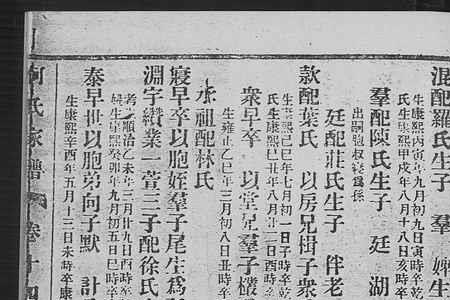 混配羅氏生子 羣 娣生
生康熙丙寅年九月初九日寅時卒乾
氏生康熙甲戌年八月十八日亥時卒
羣配陳氏生子 廷 湖
出嗣胞叔 為孫
廷配莊氏生子 伴 老
款配葉氏 以房兄揖子衆
生康熙己巳年七月初二日子時卒乾
氏生康熙己丑年八月廿二日酉時卒
衆早卒 以堂兄羣子
生雍正乙巳年三月初八日丑時卒
承祖配林氏
寢早卒以胞姪羣子尾生為
淵字纘業一萱三子配徐氏
考生順治乙未年三月廿九日酉時卒
妣生康熙癸卯年九月初五日巳時卒
泰早世以胞弟向子默 計
生康熙辛酉年五月十三日未時卒康
何氏家譜 卷十四